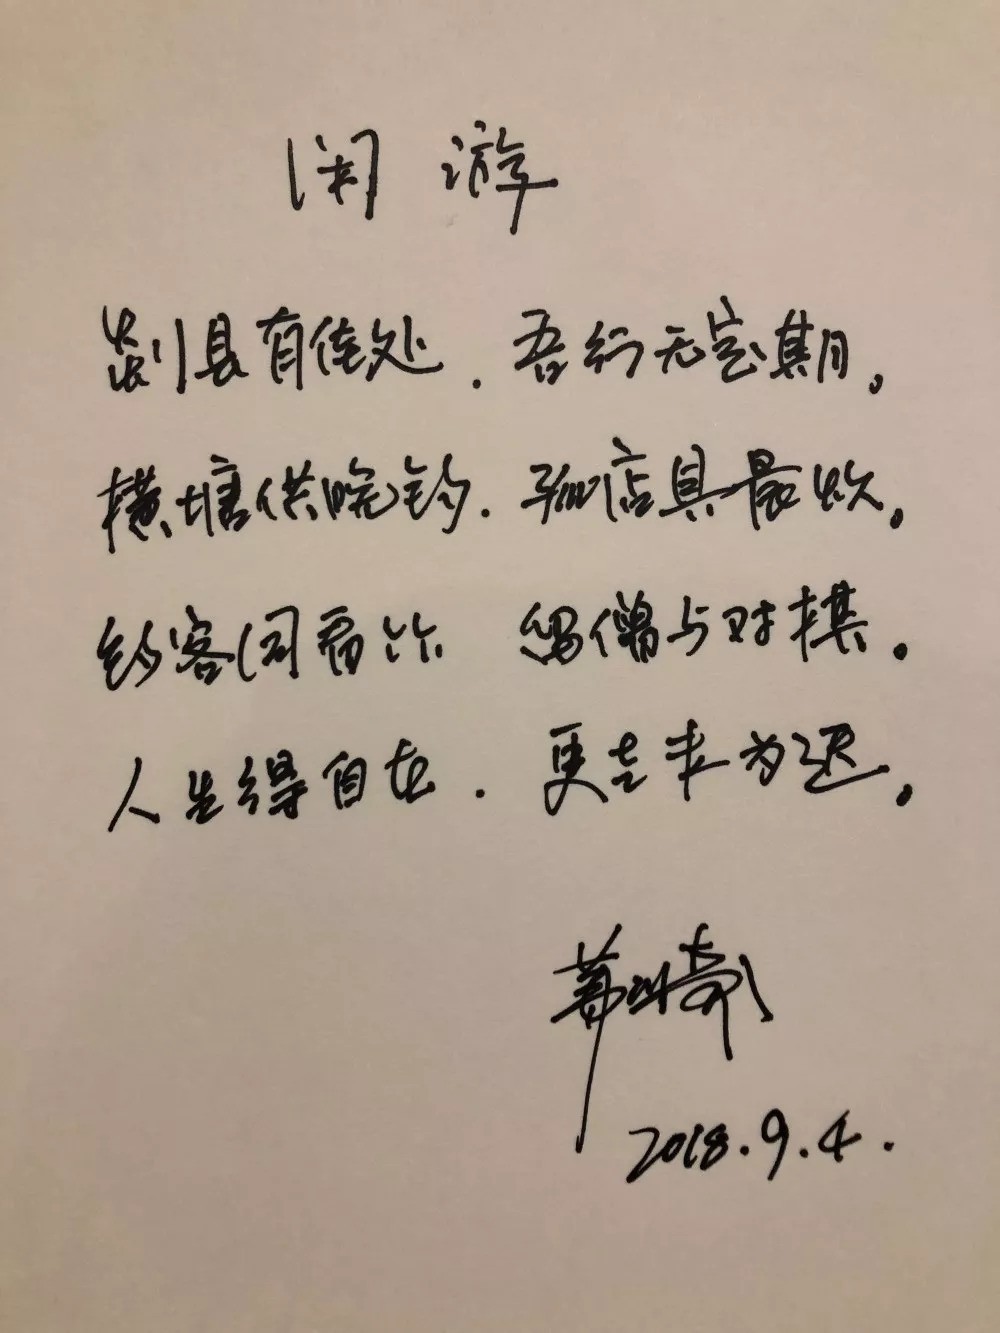 闲游
剡县有佳处.吾行无定期。
横塘供晚钓.孤店具晨炊。
约客同看竹 留僧与对棋。
人生得自在.更老未为迟。
2018.9.4.